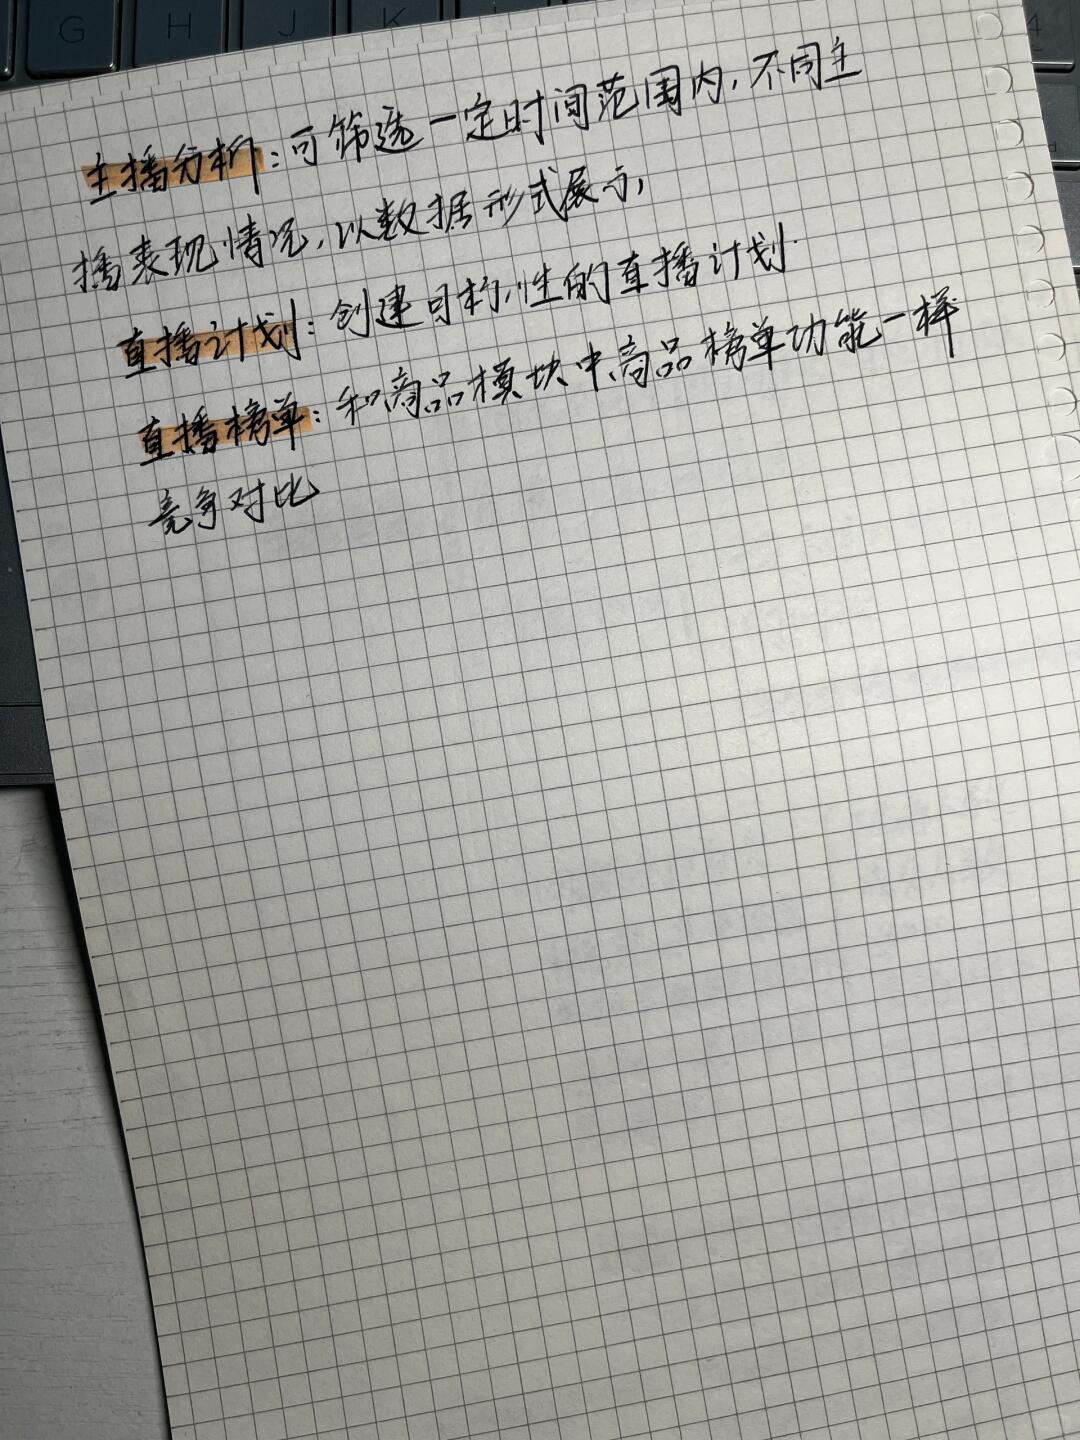 G H J K
主播分析：可筛选一定时间范围内，不同主
播表现情况，以数据形式展示，
直播计划：创建目标性的直播计划.
直播榜单：和商品模块中商品榜单功能一样
竞争对比